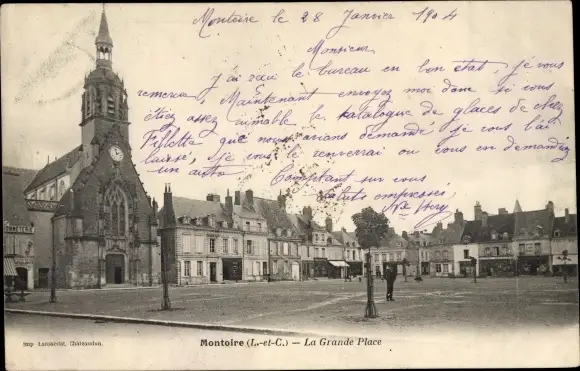 Montoire le 28 Janvier 1904
Monsieur
J'ai reçu le bureau en bon état, je vous
remercie, Maintenant envoyez moi donc si vous
étiez assez aimable le Katalogue de glaces de chez
Fillette que nous avions demandé je vous l'ai
laissé, je vous le renverrai ou vous en demandiez
un autre Comptant sur vous
Saluts empressés
BONNETERIE
Imp Laussedat, Châteaudun.
Montoire (L.-et-C.) — La Grande Place